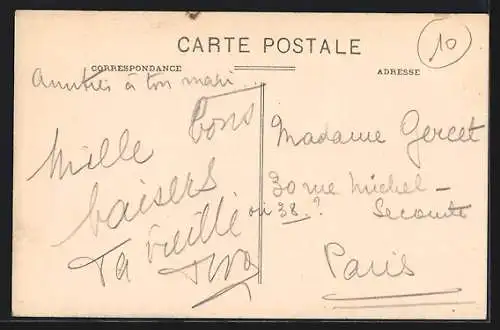 CARTE POSTALE
10
CORRESPONDANCE
ADRESSE
à ton mari
Mille bons
baisers
Ta vieille
Madame Gercet
30 rue Michel-
ou 38.?
Paris